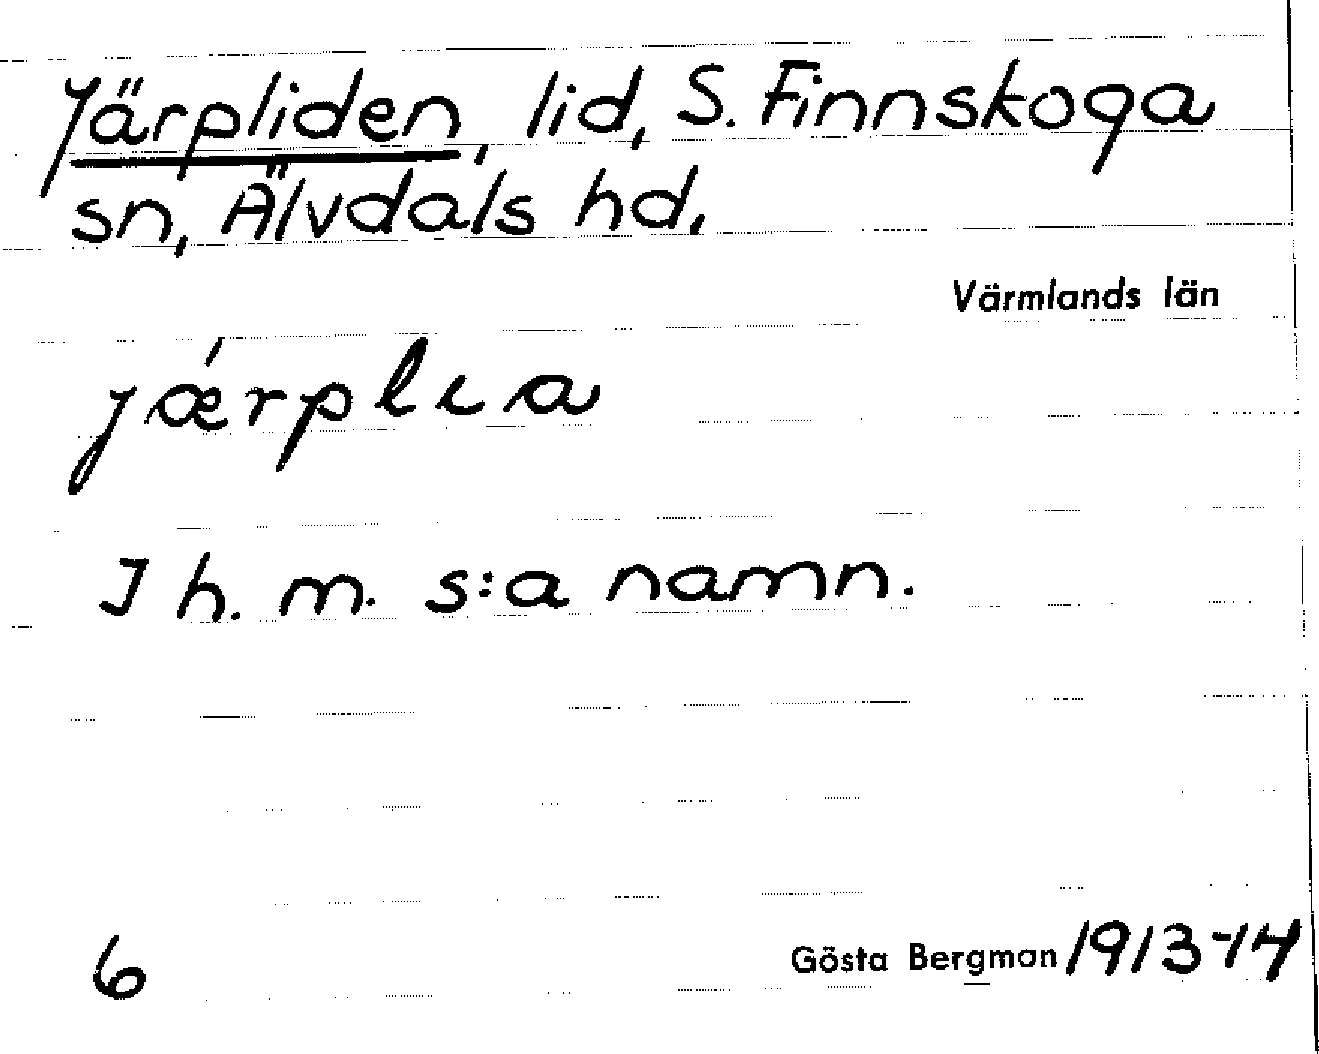 Järpliden, lid, S. Finnskoga
sn, Älvdals hd.
Värmlands län
jǽrplia
I h. m. s:a namn.
6
Gösta Bergman 1913-14